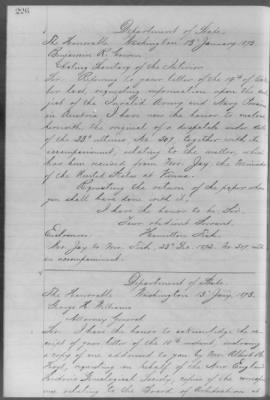 226
Department of State.
The Honorable Washington 13th January 1873.
Benjamin R. Cowen
Acting Secretary of the Interior
Sir: Referring to your letter of the 19th of
ber last, requesting information upon the
ject of the Invalid Army and Navy
in Austria, I have now the honor to
herewith the original of a despatch under date
of the 23d ultimo No. 509 together with its
accompaniment, relating to the matter, which
has been received from Mr. Jay, the Minister
of the United States at Vienna.
Requesting the return of the paper when
you shall have done with it,
I have the honor to be, Sir,
Your obedient Servant,
Enclosure: Hamilton Fish.
Mr. Jay to Mr. Fish, 23d Dec. 1872. No 509 with
an accompaniment.
Department of State.
The Honorable Washington 13th Jany. 1873.
George H. Williams
Attorney General
Sir: I have the honor to acknowledge the re-
ceipt of your letter of the 10th instant, enclosing
a copy of one addressed to you by Mr. Albert H.
Hoyt, requesting on behalf of the New England
Historic Genealogical Society, copies of the
relating to the Board of Arbitration at